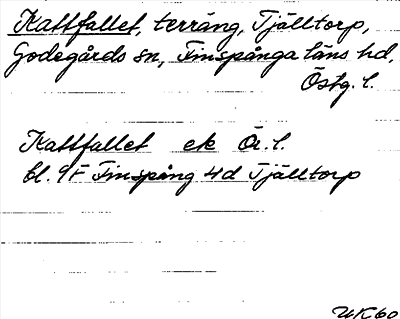 Kattfallet, terräng, Tjälltorp,
Godegårds sn, Finspånga läns hd,
Östg. l.
Kattfallet ek Ö. l.
bl. 9F Finspång 4d Tjälltorp
UK60